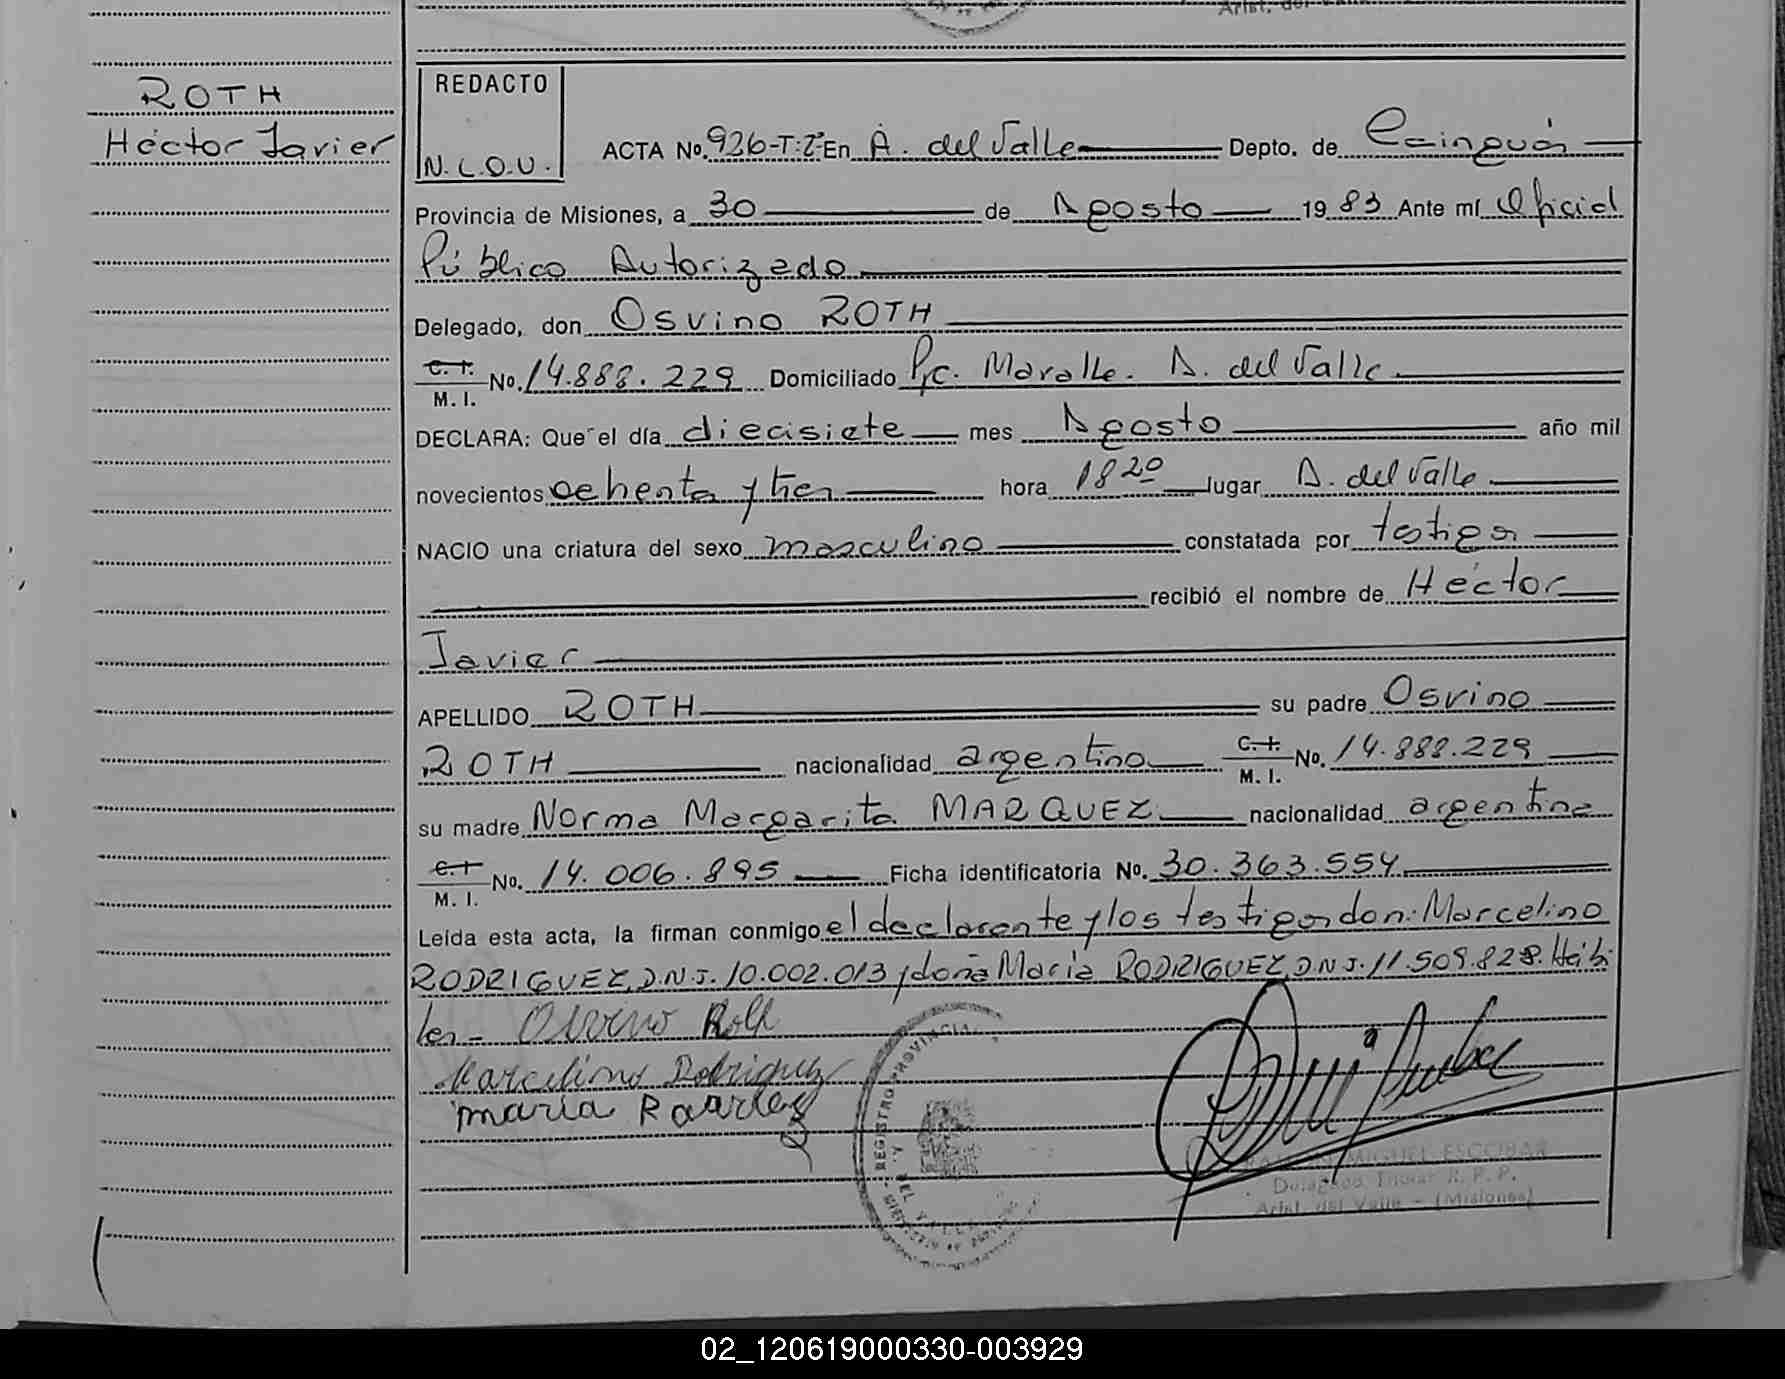 Arist. del
ROTH
Héctor Javier
REDACTO
N.L.O.V.
ACTA No. 926-T:2º-En A. del Valle Depto. de Cainguás
Provincia de Misiones, a 30 de Agosto 19 83 Ante mí Oficial
Público Autorizado
Delegado, don Osvino ROTH
C. I.
M. I. No. 14.888.229 Domiciliado Pje. A. del Valle
DECLARA: Que el día diecisiete mes Agosto año mil
novecientos ochenta y tres hora 18 20 lugar A. del Valle
NACIO una criatura del sexo masculino constatada por testigos
recibió el nombre de Héctor
Javier
APELLIDO ROTH su padre Osvino
ROTH nacionalidad argentino C. I. M. I. No. 14.888.229
su madre Norma Margarita MARQUEZ nacionalidad argentina
C. I. M. I. No. 14.006.895 Ficha identificatoria No. 30.363.554
Leída esta acta, la firman conmigo el declarante y los testigos don: Marcelino
RODRIGUEZ, D.N.I. 10.002.013 y doña María RODRIGUEZ, D.N.I. 11.509.828. Hábi
les-
Osvino Roth
Marcelino Rodriguez
maria
REGISTRO PROVINCIAL
MIGUEL ESCOBAR
Delegado Titular R. P. P.
Arist. del Valle - (Misiones)
02_120619000330-003929